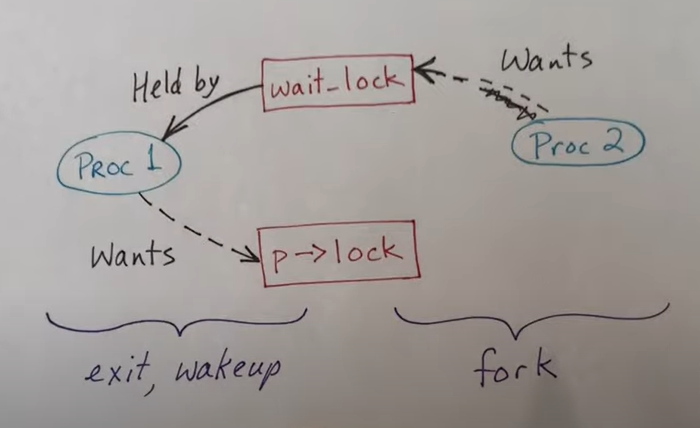 Wants
Held by
wait_lock
Proc 1
Proc 2
Wants
p->lock
exit, wakeup
fork